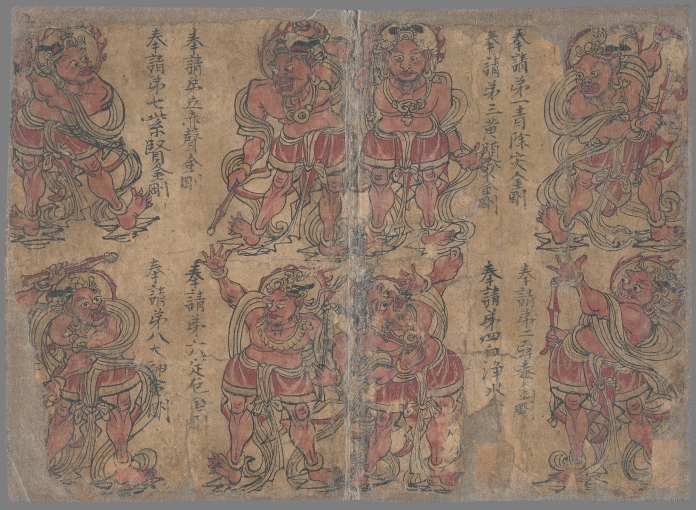 奉請第一青除灾金剛
奉請第二毒金剛
奉請第三黄随求金剛
奉請第四白浄水
奉請第五赤聲金剛
奉請第六定除金剛
奉請第七紫賢金剛
奉請第八大神金剛